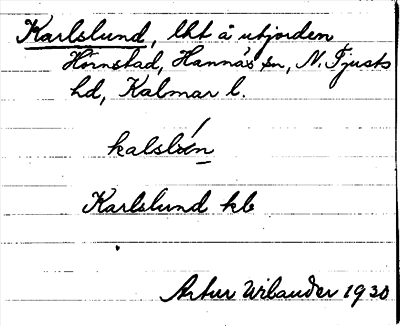 Karlslund, lht å utjorden
Hörnstad, Hannäs sn, N. Tjusts
hd, Kalmar l.
Karlslund kb
Artur Wilander 1930